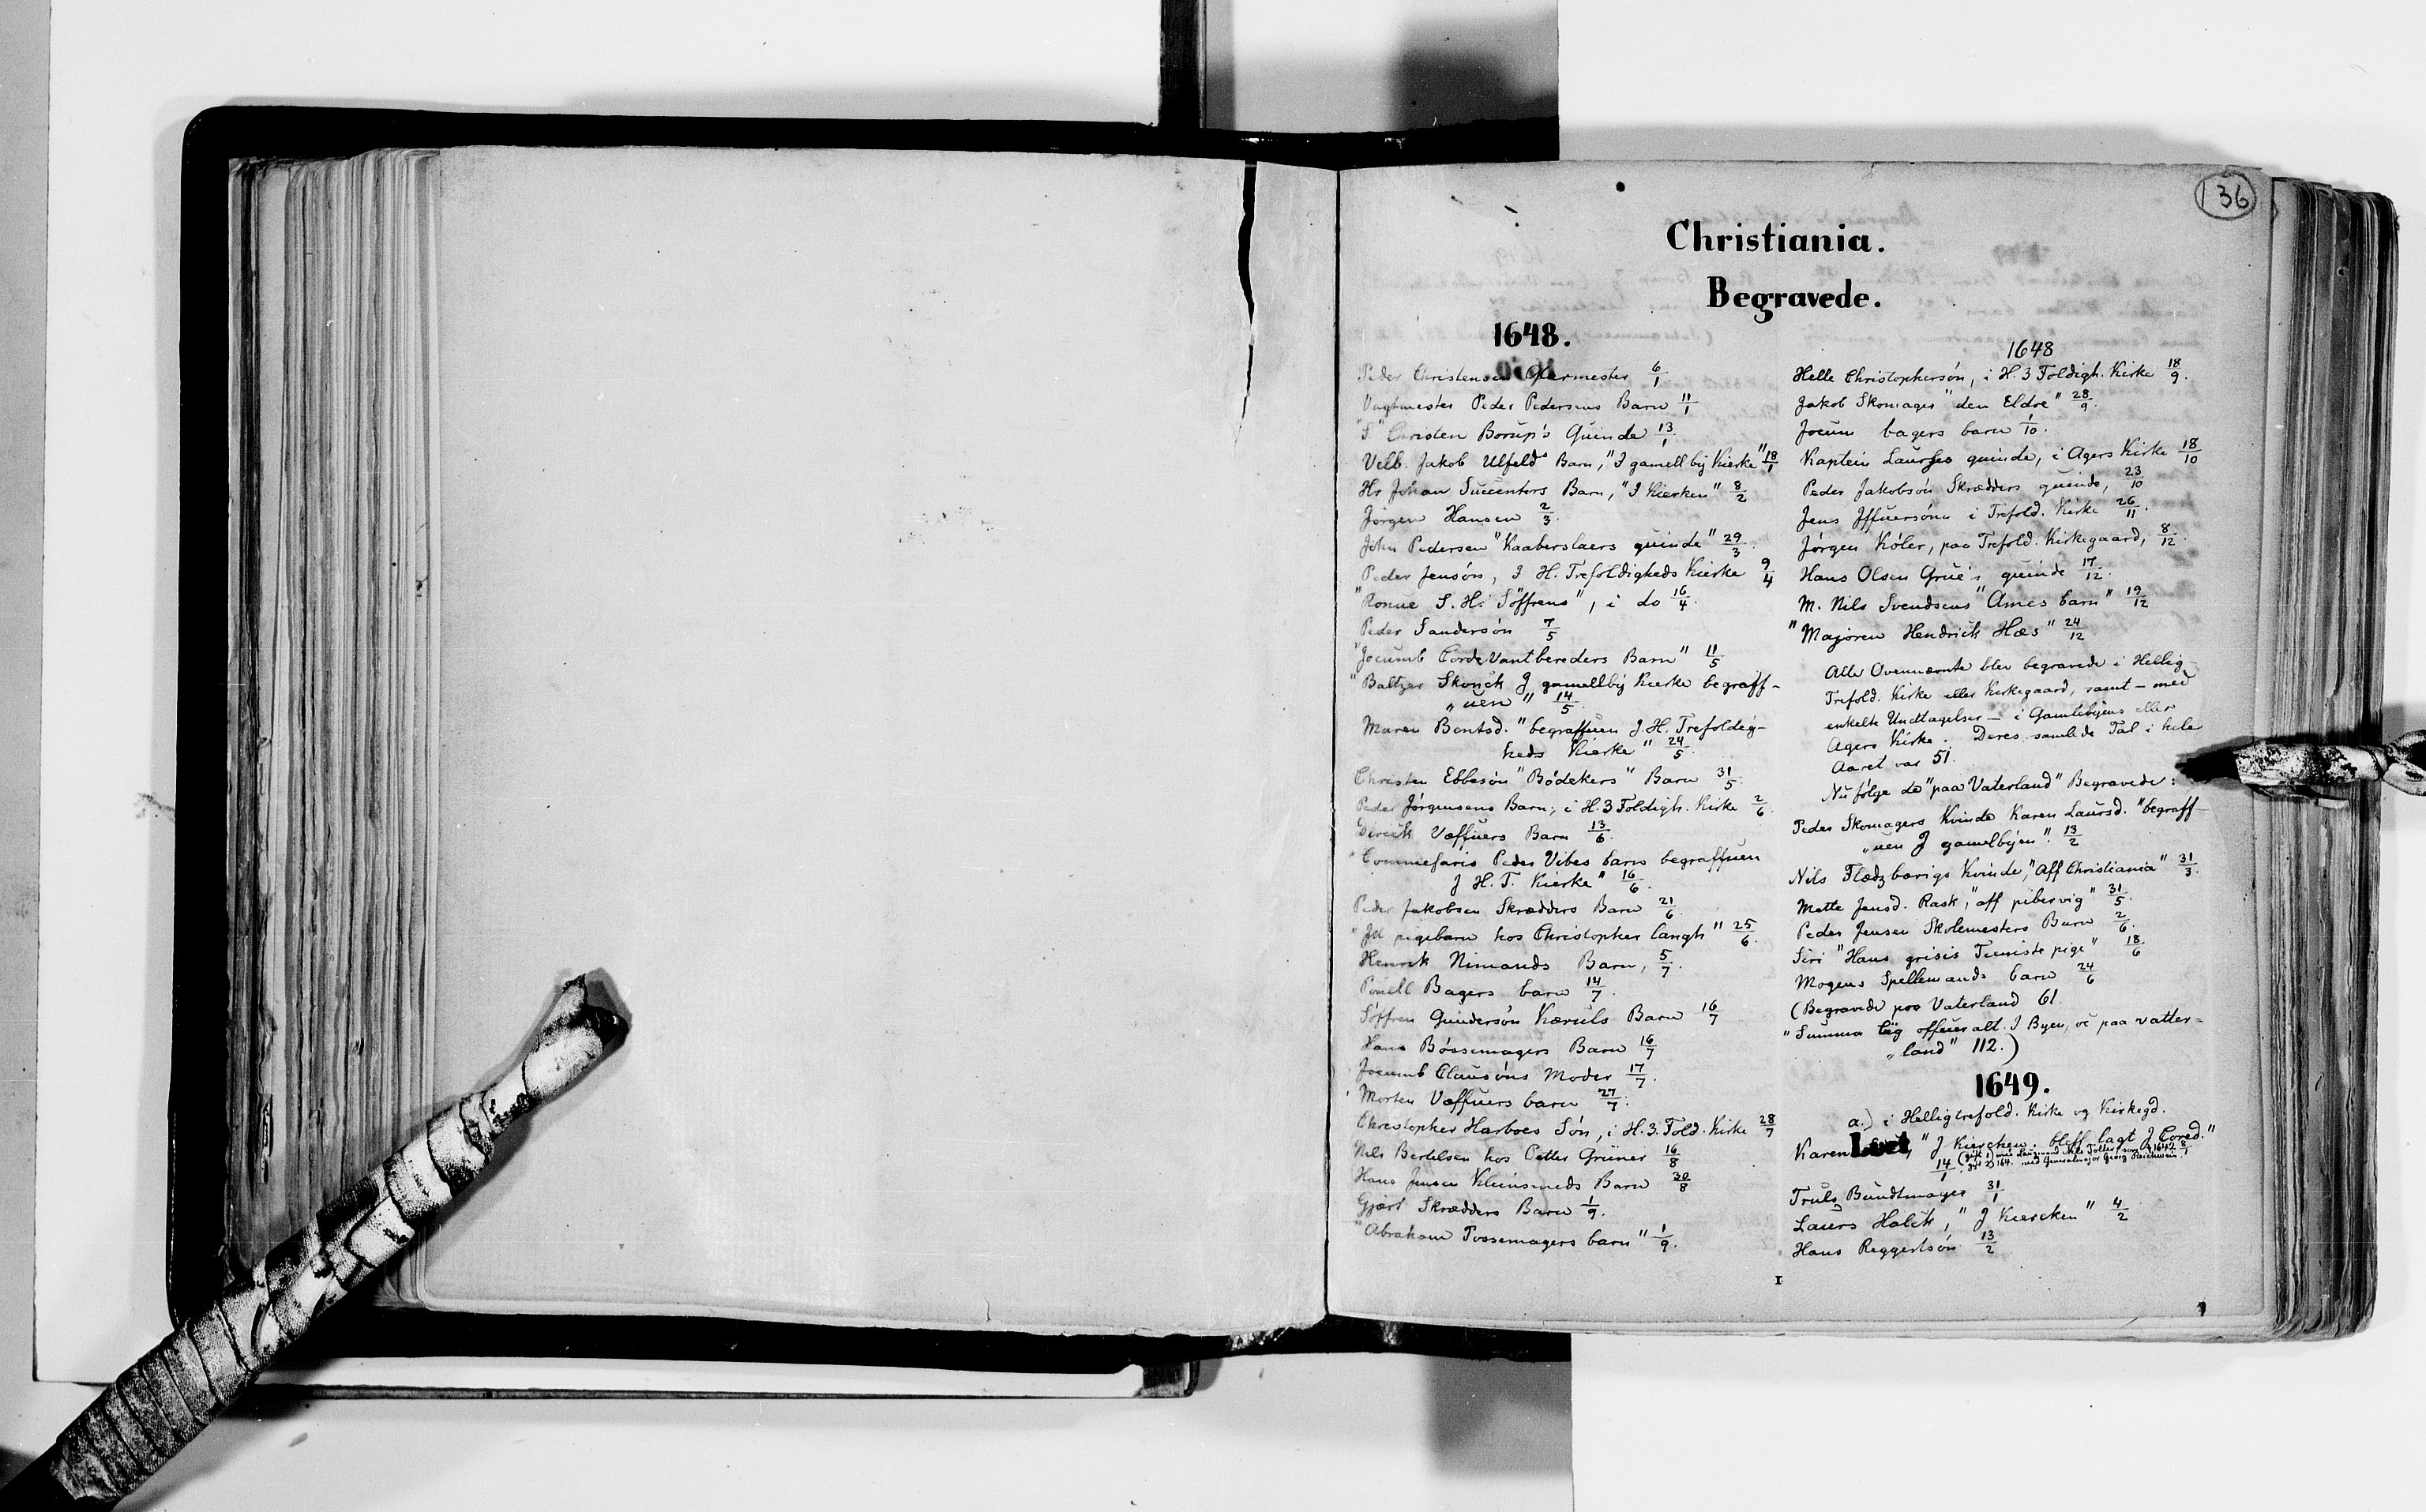 136
Christiania.
Begravede.
1648.
Peder Christensen Glarmester 6/1
Vagtmester Peder Pedersens Barn 11/1
"S." Christen Borup's Quinde 13/1
Velb. Jakob Ulfelds Barn, "I gamell bÿ Kierke" 18/1
Hr Johan Succentors Barn, "I Kierken" 8/2
Jørgen Hansen 2/3.
John Pedersen "Kaaberslaers quinde" 29/3.
Peder Jensøn, I H. Trefoldigheds Kierke 9/4
"Ronue S. H: Söffrens", i do 16/4.
Peder Sandersøn 7/5
"Jocumb Corde Vantbereders Barn" 11/5
"Baltzer Skouck J gamellbÿ Kierke begraff-
"uen" 14/5.
Maren Bentsd. "begraffuen J. H. Trefoldig-
heds Kierke" 24/5.
Christen Ebbesøn "Bødekers" Barn 31/5.
Peder Jørgensens Barn, i H. 3 Foldigh. Kirke 2/6.
Dirick Væffuers Barn 13/6.
"Commisaris Peder Vibes barn begraffuen
J H. T. Kierke" 16/6.
Peder Jakobsen Skrædders Barn 21/6
"Jtt pigebarn hos Christopher langh" 25/6.
Henrik Nimands Barn, 5/7.
Pouell Bagers barn 14/7.
Söffren Gundersøn Kæruls Barn 16/7
Hans Bøssemagers Barn 16/7
Jocumb Clausøns Moder 17/7.
Morten Væffuers barn 27/7.
Christopher Harboes Søn, i H. 3. Fold. Kirke 28/7
Nils Bertelsen hos Petter Grüner 16/8
Hans Jensen Kleinsmeds Barn 30/8
Gjært Skrædders Barn 1/9.
"Abraham Possemagers barn" 1/9.
1648
Helle Christophersøn, i H. 3 Foldigh. Kirke 18/9.
Jakob Skomager "den Eldre" 28/9.
Jocum bagers barn 1/10.
Kaptein Laurses quinde, i Agers Kirke 18/10
Peder Jakobsøn Skrædders quinde, 23/10
Jens Iffuersønn i Trefold. Kirke 26/11.
Jørgen Køler, paa Trefold. Kirkegaard, 8/12.
Hans Olsen Grue's quinde 17/12.
M. Nils Svendsens "Ames barn" 19/12
"Majoren Hendrick Hæs" 24/12
Alle Ovennævnte blev begravede i Hellig
Trefold. Kirke eller Kirkegaard, samt – med
enkelte Undtagelser – i Gamlebyens eller
Agers Kirke. Deres samlede Tal i hele
Aaret var 51.
Nu følge de "paa Vaterland" Begravede:
Peder Skomagers Kvinde Karen Laursd. "begraff-
"uen J gamelbyen". 13/2
Nils Flædzbærigs Kvinde, "Aff Christiania" 31/3.
Mette Jensd. Rask, "aff pibervig" 31/5.
Peder Jensen Skolemesters Barn 2/6.
Siri "Hans grisis Tieniste pige" 18/6
Mogens Spellemands barn 24/6
(Begravede paa Vaterland 61.
"Summa lüg offuer alt. I Byen, oc paa vatter-
"land" 112.)
1649.
a.) i Helligtrefold. Kirke og Kirkegd.
Karen "J Kiercken. bleff lagt J Cored."
14/1
Truls Bundtmager 31/1
Laurs Holck, "J Kiercken" 4/2
Hans Reggertsøn 13/2
1